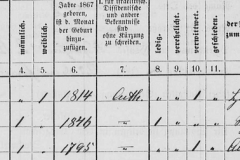 Jahre 1867
geboren,
ist d. Monat
der Geburt
hinzu-
zufügen.
Dissidentische
und andere
Bekenntnisse
sind
ohne Kürzung
zu schreiben.
männlich.
weiblich.
ledig.
verehelicht.
verwittwet.
geschieden.
4. 5. 6. 7. 8. 9. 10. 11.
" 1 1814 " " 1 "
" 1 1846 — 1 " " "
" 1 1795 — " " 1 "